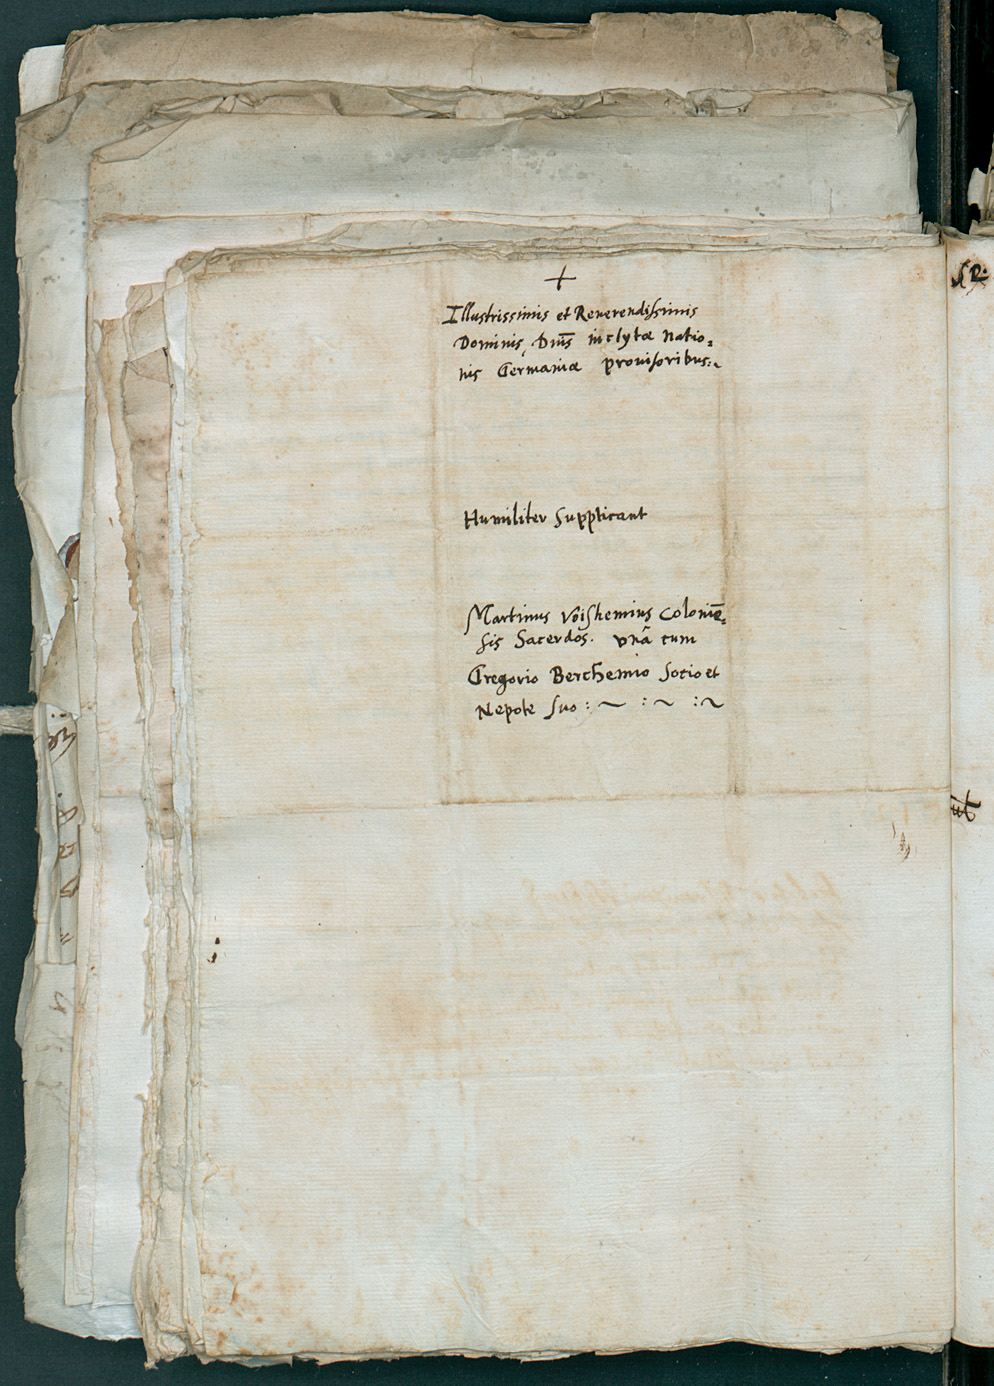 +
Illustrissimis et Reuerendissimis
Dominis, Dnis inclytæ Natio=
nis Germaniæ prouisoribus:~
Humiliter Supplicant
Martinus Voishemius Colonie͞=
sis Sacerdos. vnâ cum
Gregorio Berchemio Sotio et
Nepote suo :~ :~ :~